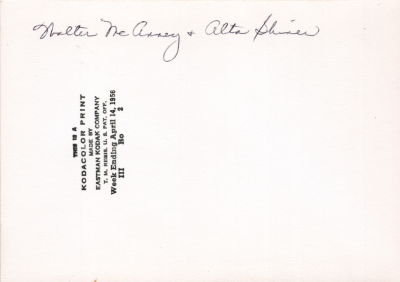 Walter McAnney & Alta Shiner
THIS IS A
KODACOLOR PRINT
MADE BY
EASTMAN KODAK COMPANY
T. M. REGIS. U. S. PAT. OFF.
Week Ending April 14, 1956
III Ro 2